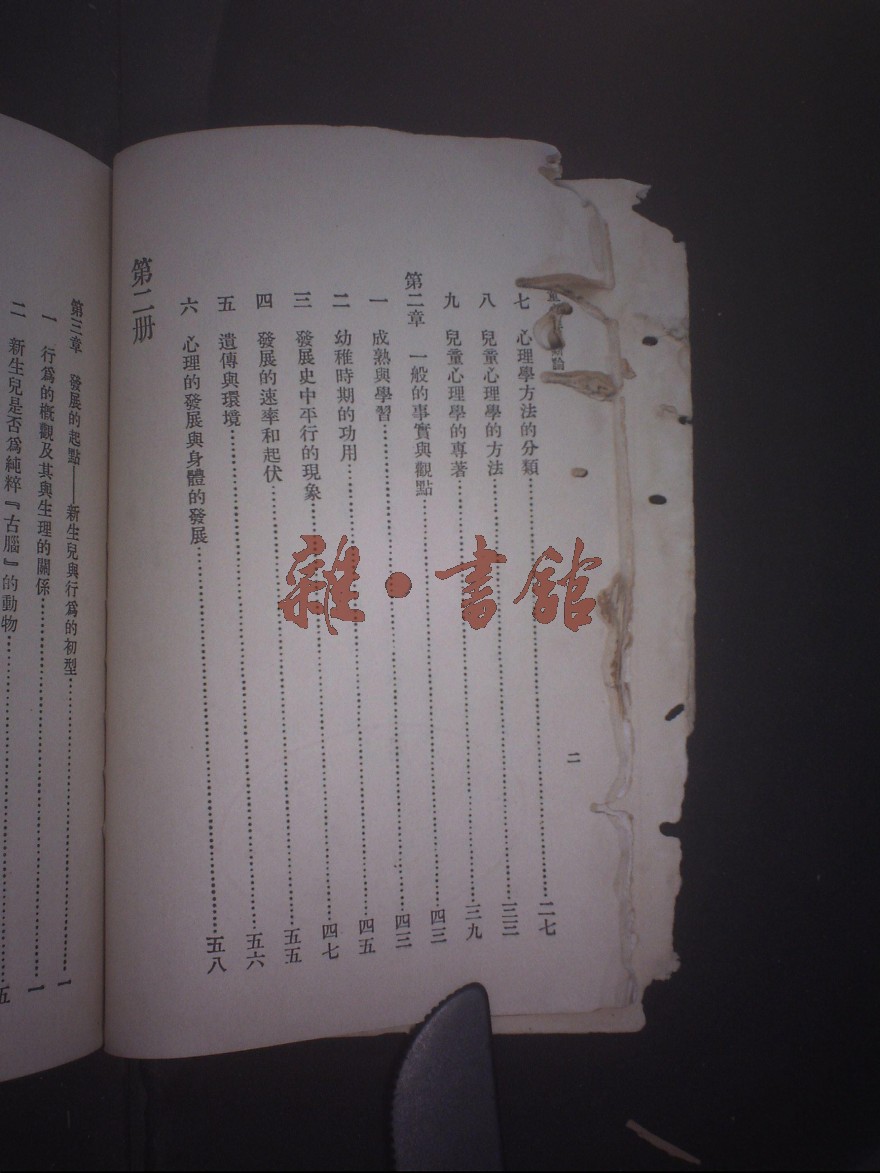 七　心理學方法的分類……二七
八　兒童心理學的方法……三三
九　兒童心理學的專著……三九
第二章　一般的事實與觀點……四三
一　成熟與學習……四三
二　幼稚時期的功用……四五
三　發展史中平行的現象……四七
四　發展的速率和起伏……五五
五　遺傳與環境……五六
六　心理的發展與身體的發展……五八
第二册
第三章　發展的起點——新生兒與行爲的初型……一
一　行爲的概觀及其與生理的關係……一
二　新生兒是否爲純粹『古腦』的動物……五
二
雜·書館